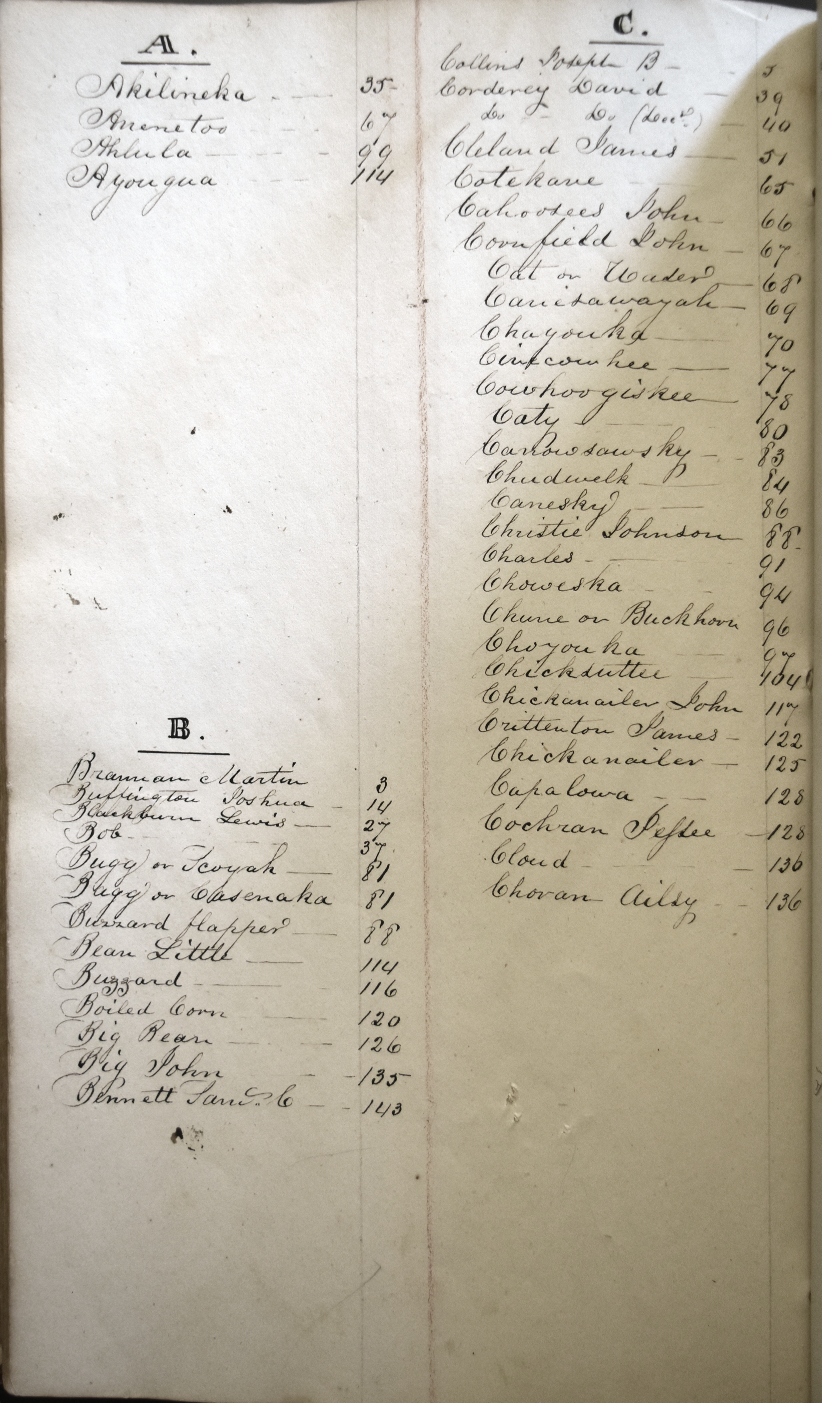 A.
Akilineka 35
Anenetoo 67
Ahlula 99
Ayougua 114
B.
Brannan Martin 3
Buffington Joshua 14
Blackburn Lewis 27
Bob 37
Bugg or Tcoyah 81
Bugg or Casenaka 81
Buzzard flapper 88
Bean Little 114
Buzzard 116
Boiled Corn 120
Big Bean 126
Big John 135
Bennett Saml. C 143
C.
Collins Joseph B 5
Corderey David 39
Do Do (Decd.) 40
Cleland James 51
Cotekane 65
Cahoosees John 66
Cornfield John 67
Cat or 68
Canisawayah 69
Chayouka 70
Cinecowhee 77
Cowhoogiskee 78
Caty 80
Canowsawsky 83
Chudwelk 84
Canesky 86
Christie Johnson 88
Charles 91
Choweska 94
Chune or Buckhorn 96
Choyouka 97
Chicksuttee 104
Chickanailer John 117
Crittenton James 122
Chickanailer 125
Capalowa 128
Cochran Jessee 128
Cloud 136
Chovan Ailsy 136